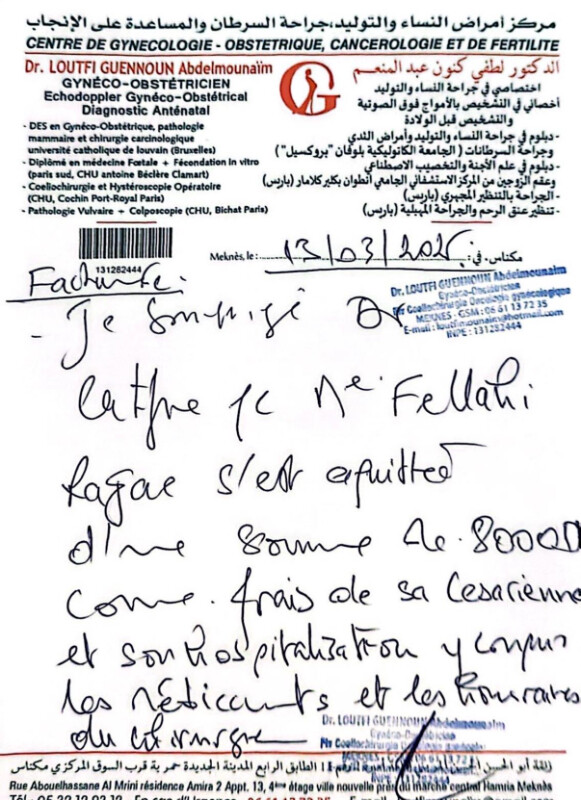 مركز أمراض النساء والتوليد،جراحة السرطان والمساعدة على الإنجاب
CENTRE DE GYNECOLOGIE - OBSTETRIQUE, CANCEROLOGIE ET DE FERTILITE
Dr. LOUTFI GUENNOUN Abdelmounaïm
GYNÉCO-OBSTÉTRICIEN
Echodoppler Gynéco-Obstétrical
Diagnostic Anténatal
- DES en Gynéco-Obstétrique, pathologie
mammaire et chirurgie carcinologique
université catholique de louvain (Bruxelles)
- Diplômé en médecine Fœtale + Fécondation in vitro
(paris sud, CHU antoine Béclère Clamart)
- Coeliochirurgie et Hystéroscopie Opératoire
(CHU, Cochin Port-Royal Paris)
- Pathologie Vulvaire + Colposcopie (CHU, Bichat Paris)
الدكتور لطفي كنون عبد المنعم
اختصاصي في جراحة النساء والتوليد
أخصائي في التشخيص بالأمواج فوق الصوتية
والتشخيص قبل الولادة
- دبلوم في جراحة النساء والتوليد وأمراض الثدي
وجراحة السرطانات ( الجامعة الكاثوليكية بلوفان "بروكسيل" )
- دبلوم في علم الأجنة والتخصيب الاصطناعي
وعقم الزوجين من المركز الاستشفائي الجامعي أنطوان بكلير كلامار (باريس)
- الجراحة بالتنظير المجهري (باريس)
- تنظير عنق الرحم والجراحة المهبلية (باريس)
131282444
Meknès, le : 13/03/2025 مكناس، في :
Facture.
Dr. LOUTFI GUENNOUN Abdelmounaim
Gynéco-Obstétricien
Coeliochirurgie Oncologie gynécologique
MEKNES - GSM : 06 61 13 72 35
E-mail : loutfimounaim@hotmail.com
INPE : 131282444
- Je soussigné Dr
Certifie que Me Fellahi
s'est aquitted
d'une somme de 8000D
come frais de sa Cesarienne
et son hospitalisation y compris
les médicants et les honoraires
du chirurgie
Dr. LOUTFI GUENNOUN Abdelmounaim
Gynéco-Obstétricien
Coeliochirurgie Oncologie gynécologique
زنقة أبو الحسن الطابق الرابع المدينة الجديدة حمرية قرب السوق المركزي مكناس
Rue Abouelhassane Al Mrini résidence Amira 2 Appt. 13, 4ème étage ville nouvelle près du marché central Hamria Meknès